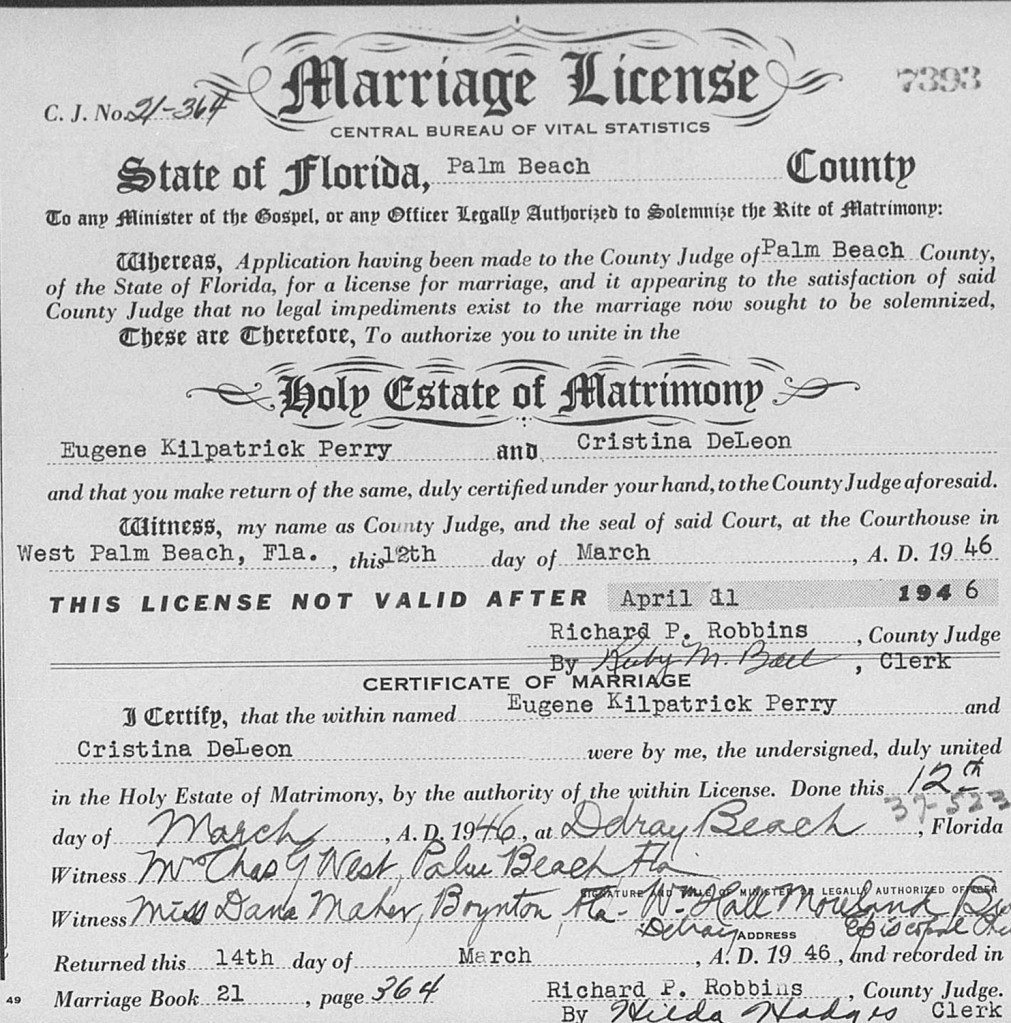 Marriage License
7393
C. J. No. 21-364
CENTRAL BUREAU OF VITAL STATISTICS
State of Florida, Palm Beach County
To any Minister of the Gospel, or any Officer Legally Authorized to Solemnize the Rite of Matrimony:
Whereas, Application having been made to the County Judge of Palm Beach County,
of the State of Florida, for a license for marriage, and it appearing to the satisfaction of said
County Judge that no legal impediments exist to the marriage now sought to be solemnized,
These are Therefore, To authorize you to unite in the
Holy Estate of Matrimony
Eugene Kilpatrick Perry and Cristina DeLeon
and that you make return of the same, duly certified under your hand, to the County Judge aforesaid.
Witness, my name as County Judge, and the seal of said Court, at the Courthouse in
West Palm Beach, Fla., this 12th day of March, A. D. 19 46
THIS LICENSE NOT VALID AFTER April 11 194 6
Richard P. Robbins, County Judge
By Ruby M. Ball, Clerk
CERTIFICATE OF MARRIAGE
I Certify, that the within named Eugene Kilpatrick Perry and
Cristina DeLeon were by me, the undersigned, duly united
in the Holy Estate of Matrimony, by the authority of the within License. Done this 12th
37-523
day of March, A. D. 1946, at Delray Beach, Florida
Witness Mrs Chas G West, Palm Beach Fla
SIGNATURE AND TITLE OF MINISTER OR LEGALLY AUTHORIZED OFFICER
Witness Miss Dana Maher, Boynton, Fla- Wm Hall Moreland
Delray ADDRESS Episcopal
Returned this 14th day of March, A. D. 19 46, and recorded in
Marriage Book 21, page 364 Richard P. Robbins, County Judge.
49
By Hilda Hodges Clerk